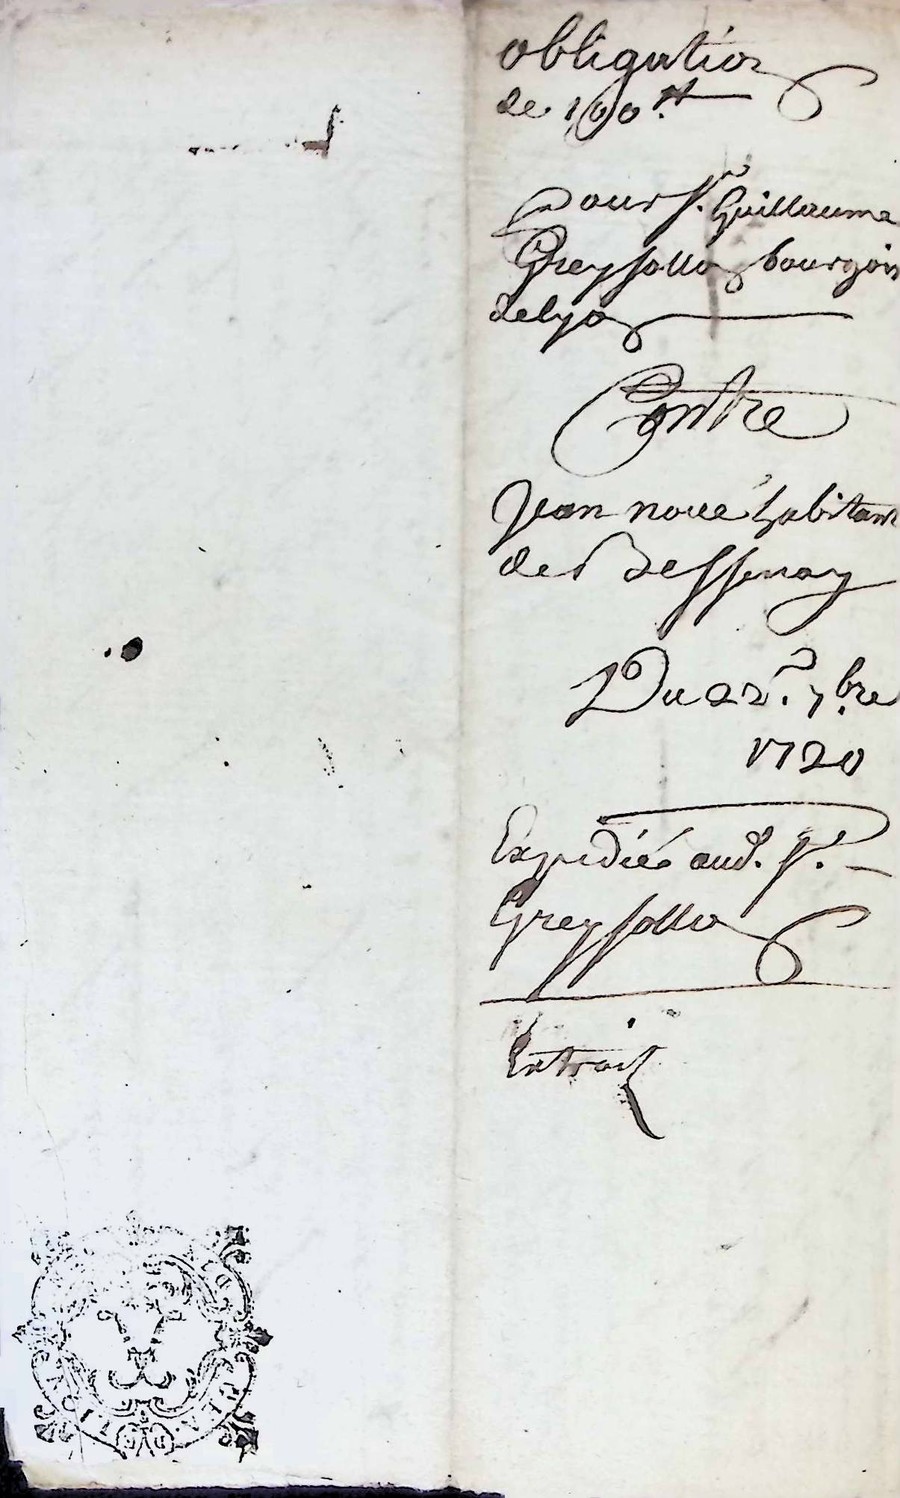 obligation
de 100 ₶
pour Sr. Guillaume
Greysollon bourgois
delyon
Contre
Jean noué habitant
de Bessenay
Du 22e. 7.bre
1720
Expediée aud. Sr.
Greysollon
Extrait